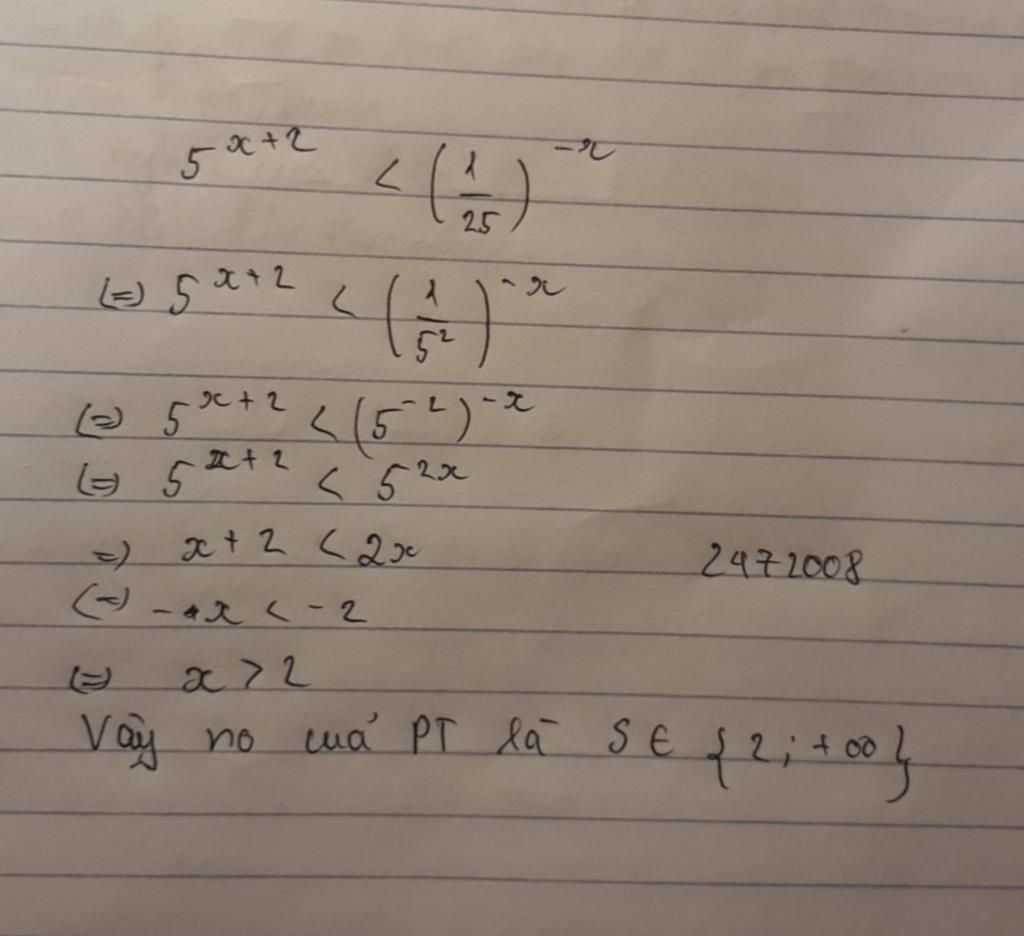 5^{x+2} < (1/25)^{-x}
(=) 5^{x+2} < (1/5^2)^{-x}
(=) 5^{x+2} < (5^{-2})^{-x}
(=) 5^{x+2} < 5^{2x}
=) x+2 < 2x
2472008
(=) -x < -2
(=) x > 2
Vậy no cuả PT là S ∈ {2; +∞}